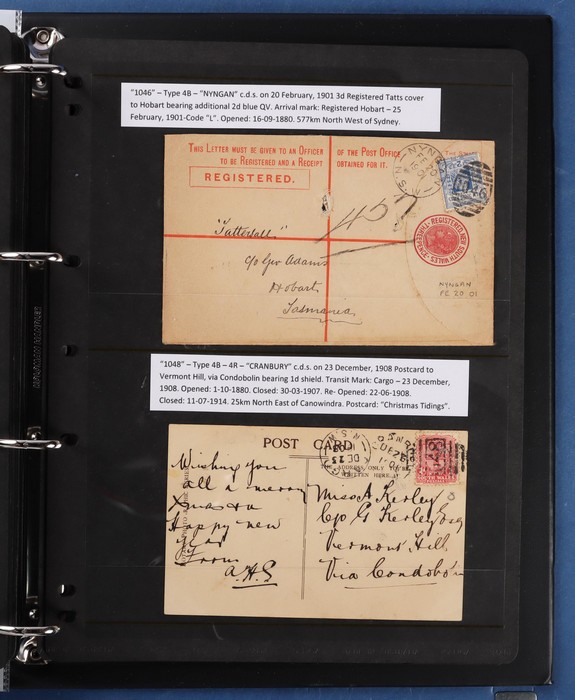 "1046" – Type 4B – "NYNGAN" c.d.s. on 20 February, 1901 3d Registered Tatts cover
to Hobart bearing additional 2d blue QV. Arrival mark: Registered Hobart – 25
February, 1901-Code "L". Opened: 16-09-1880. 577km North West of Sydney.
THIS LETTER MUST BE GIVEN TO AN OFFICER OF THE POST OFFICE
TO BE REGISTERED AND A RECEIPT OBTAINED FOR IT.
REGISTERED.
NYNGAN
N.S.W
1046
REGISTERED NEW SOUTH WALES
THREEPENCE
457
"Tattersall"
C/o Geo Adams
Hobart
Tasmania
NYNGAN
FE 20 01
"1048" – Type 4B – 4R – "CRANBURY" c.d.s. on 23 December, 1908 Postcard to
Vermont Hill, via Condobolin bearing 1d shield. Transit Mark: Cargo – 23 December,
1908. Opened: 1-10-1880. Closed: 30-03-1907. Re- Opened: 22-06-1908.
Closed: 11-07-2014. 25km North East of Canowindra. Postcard: "Christmas Tidings".
POST CARD
ADDRESS ONLY TO BE
WRITTEN HERE
DE 23
Wishing you
all a merry
Xmas & a
Happy new
year
From
A.H.S
Miss A Kerley
C/o G Kerley Esq
Vermont Hill
Via Condobon